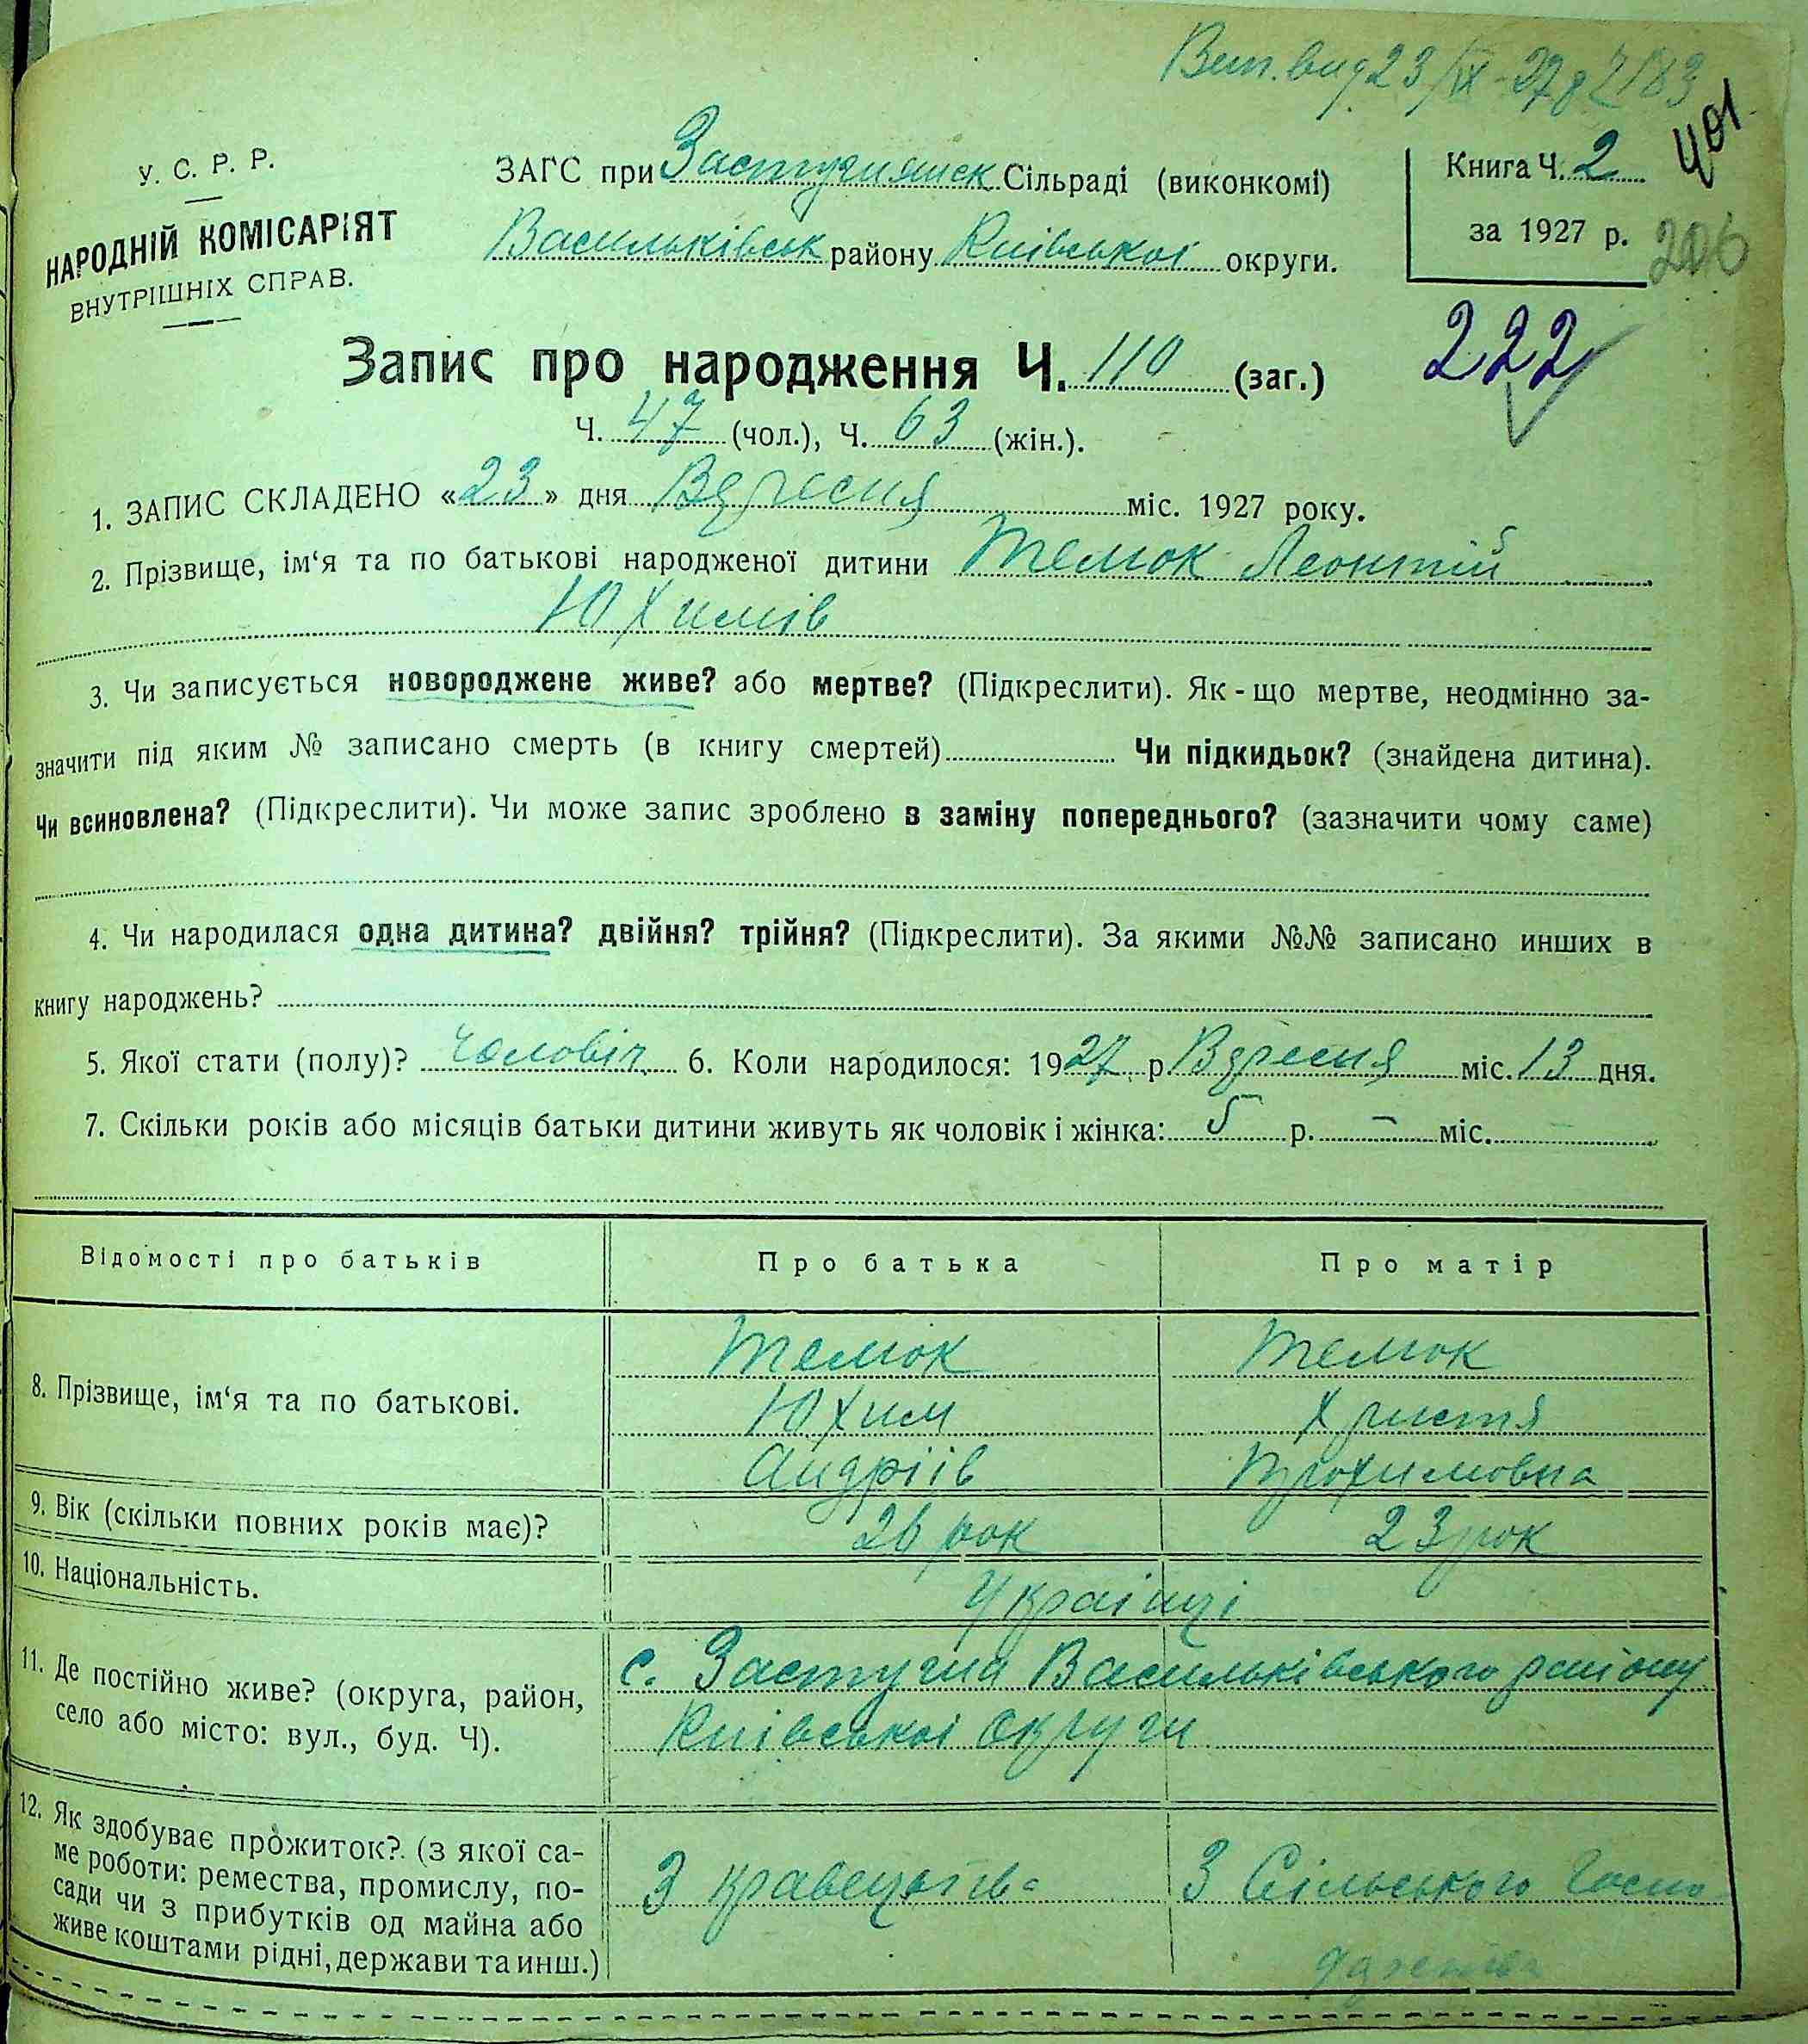 Вип. вид 23/IX-27 р
401
У. С. Р. Р.
НАРОДНІЙ КОМІСАРІЯТ
ВНУТРІШНІХ СПРАВ.
ЗАГС при Застугнянск Сільраді (виконкомі)
Васильківськ району Київської округи.
Книга Ч. 2
за 1927 р.
206
222
Запис про народження Ч. 110 (заг.)
Ч. 47 (чол.), Ч. 63 (жін.).
1. ЗАПИС СКЛАДЕНО «23» дня Вересня міс. 1927 року.
2. Прізвище, ім‘я та по батькові народженої дитини Телюк Леонтій
Юхимів
3. Чи записується новороджене живе? або мертве? (Підкреслити). Як-що мертве, неодмінно за-
значити під яким № записано смерть (в книгу смертей) Чи підкидьок? (знайдена дитина).
Чи всиновлена? (Підкреслити). Чи може запис зроблено в заміну попереднього? (зазначити чому саме)
4. Чи народилася одна дитина? двійня? трійня? (Підкреслити). За якими №№ записано инших в
книгу народжень?
5. Якої стати (полу)? чоловіч. 6. Коли народилося: 1927 р. Вересня міс. 13 дня.
7. Скільки років або місяців батьки дитини живуть як чоловік і жінка: 5 р. — міс.
Відомості про батьків Про батька Про матір
8. Прізвище, ім‘я та по батькові.
Телюк Телюк
Юхим Христя
Андріїв Трохимовна
9. Вік (скільки повних років має)? 26 рок 23 рок
10. Національність. Українці
11. Де постійно живе? (округа, район,
село або місто: вул., буд. Ч).
с. Застугна Васильківського району
Київської округи
12. Як здобуває прожиток? (з якої са-
ме роботи: ремества, промислу, по-
сади чи з прибутків од майна або
живе коштами рідні, держави та инш.)
З кравецтва З Сільського Госпо
дарства